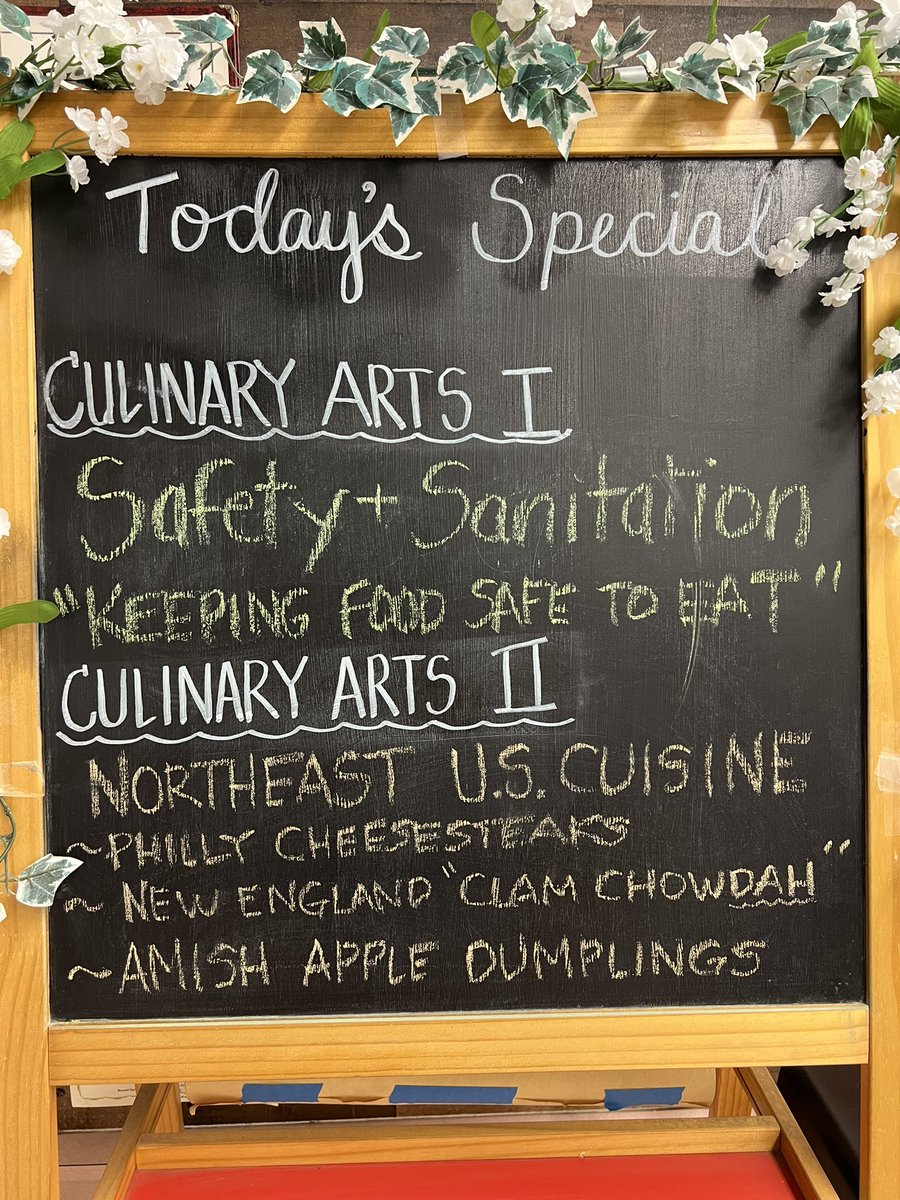 Today's Special
CULINARY ARTS I
Safety + Sanitation
"KEEPING FOOD SAFE TO EAT"
CULINARY ARTS II
NORTHEAST U.S. CUISINE
~PHILLY CHEESESTEAKS
~ NEW ENGLAND "CLAM CHOWDAH"
~AMISH APPLE DUMPLINGS